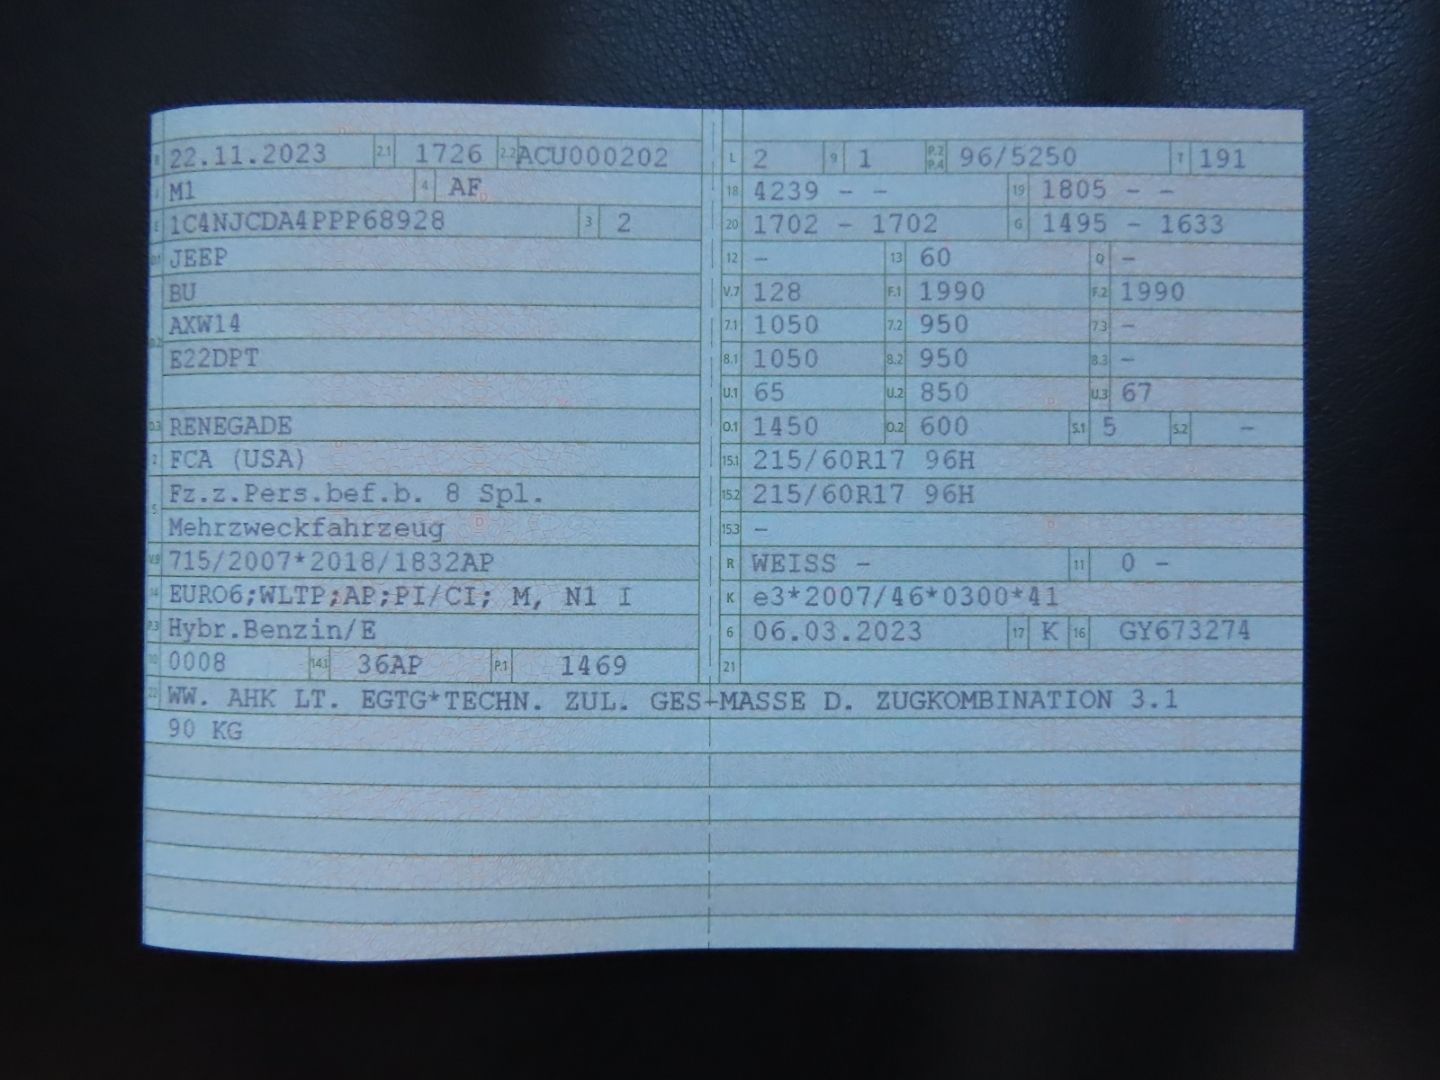 B 22.11.2023 2.1 1726 2.2 ACU000202
J M1 4 AF
E 1C4NJCDA4PPP68928 3 2
D.1 JEEP
BU
D.2 AXW14
E22DPT
D.3 RENEGADE
2 FCA (USA)
5 Fz.z.Pers.bef.b. 8 Spl.
Mehrzweckfahrzeug
V.9 715/2007*2018/1832AP
14 EURO6;WLTP;AP;PI/CI; M, N1 I
P.3 Hybr.Benzin/E
10 0008 14.1 36AP P.1 1469
L 2 9 1 P.2 P.4 96/5250 T 191
18 4239 - - 19 1805 - -
20 1702 - 1702 G 1495 - 1633
12 - 13 60 Q -
V.7 128 F.1 1990 F.2 1990
7.1 1050 7.2 950 7.3 -
8.1 1050 8.2 950 8.3 -
U.1 65 U.2 850 U.3 67
O.1 1450 O.2 600 S.1 5 S.2 -
15.1 215/60R17 96H
15.2 215/60R17 96H
15.3 -
R WEISS - 11 0 -
K e3*2007/46*0300*41
6 06.03.2023 17 K 16 GY673274
21
22 WW. AHK LT. EGTG*TECHN. ZUL. GES-MASSE D. ZUGKOMBINATION 3.1
90 KG